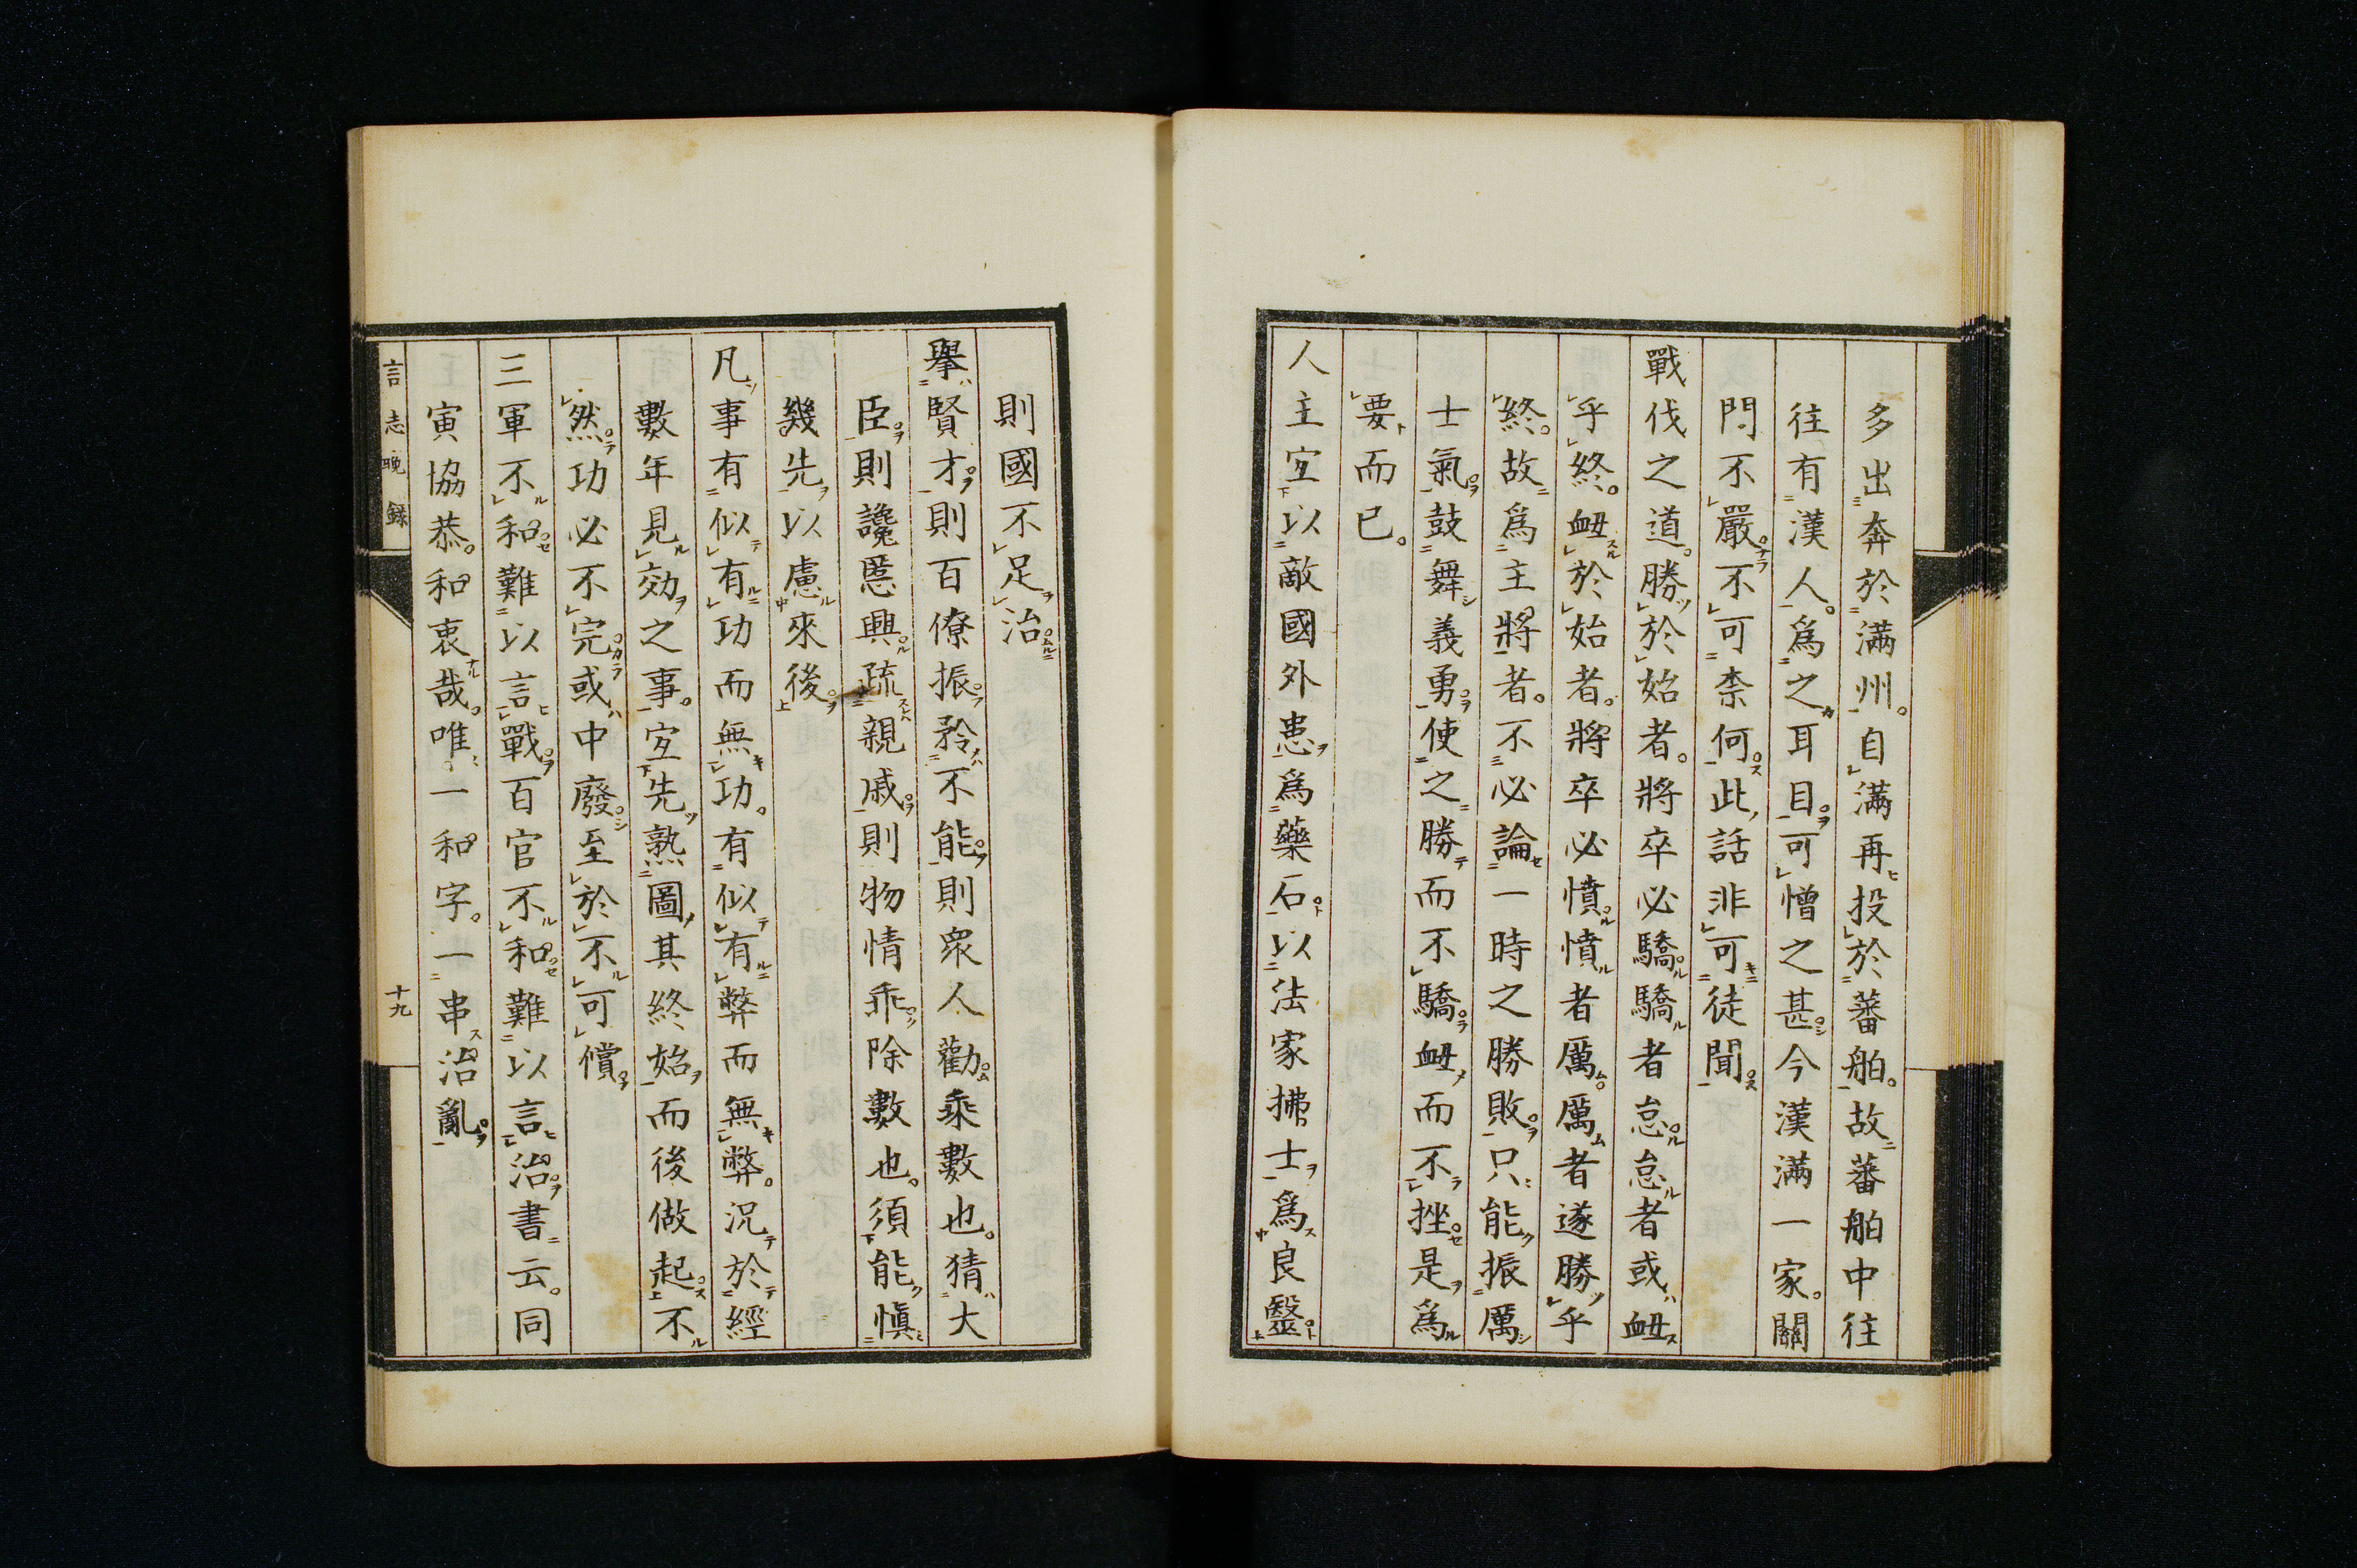 多出奔於滿州。自滿再投於蕃舶。故蕃舶中往
往有漢人。爲之耳目。可憎之甚。今漢滿一家。關
門不嚴。不可柰何。此話非可徒聞。
戰伐之道。勝於始者。將卒必驕。驕者怠。怠者或衄
乎終。衄於始者。將卒必憤。憤者厲。厲者遂勝乎
終。故爲主將者。不必論一時之勝敗。只能振厲
士氣。鼓舞義勇。使之勝而不驕。衄而不挫。是爲
要而已。
人主宜以敵國外患爲藥石。以法家拂士爲良毉。
則國不足治。
擧賢才。則百僚振。矜不能。則衆人勸。乘數也。猜大
臣。則讒慝興。疏親戚。則物情乖。除數也。須能愼
幾先以慮來後。
凡事有似有功而無功。有似有弊而無弊。況於經
數年見效之事。宜先熟圖其終始而後做起。不
然功必不完。或中廢。至於不可償。
三軍不和。難以言戰。百官不和。難以言治。書云。同
寅協恭。和衷哉。唯一和字。一串治亂。
言志晚錄
十九